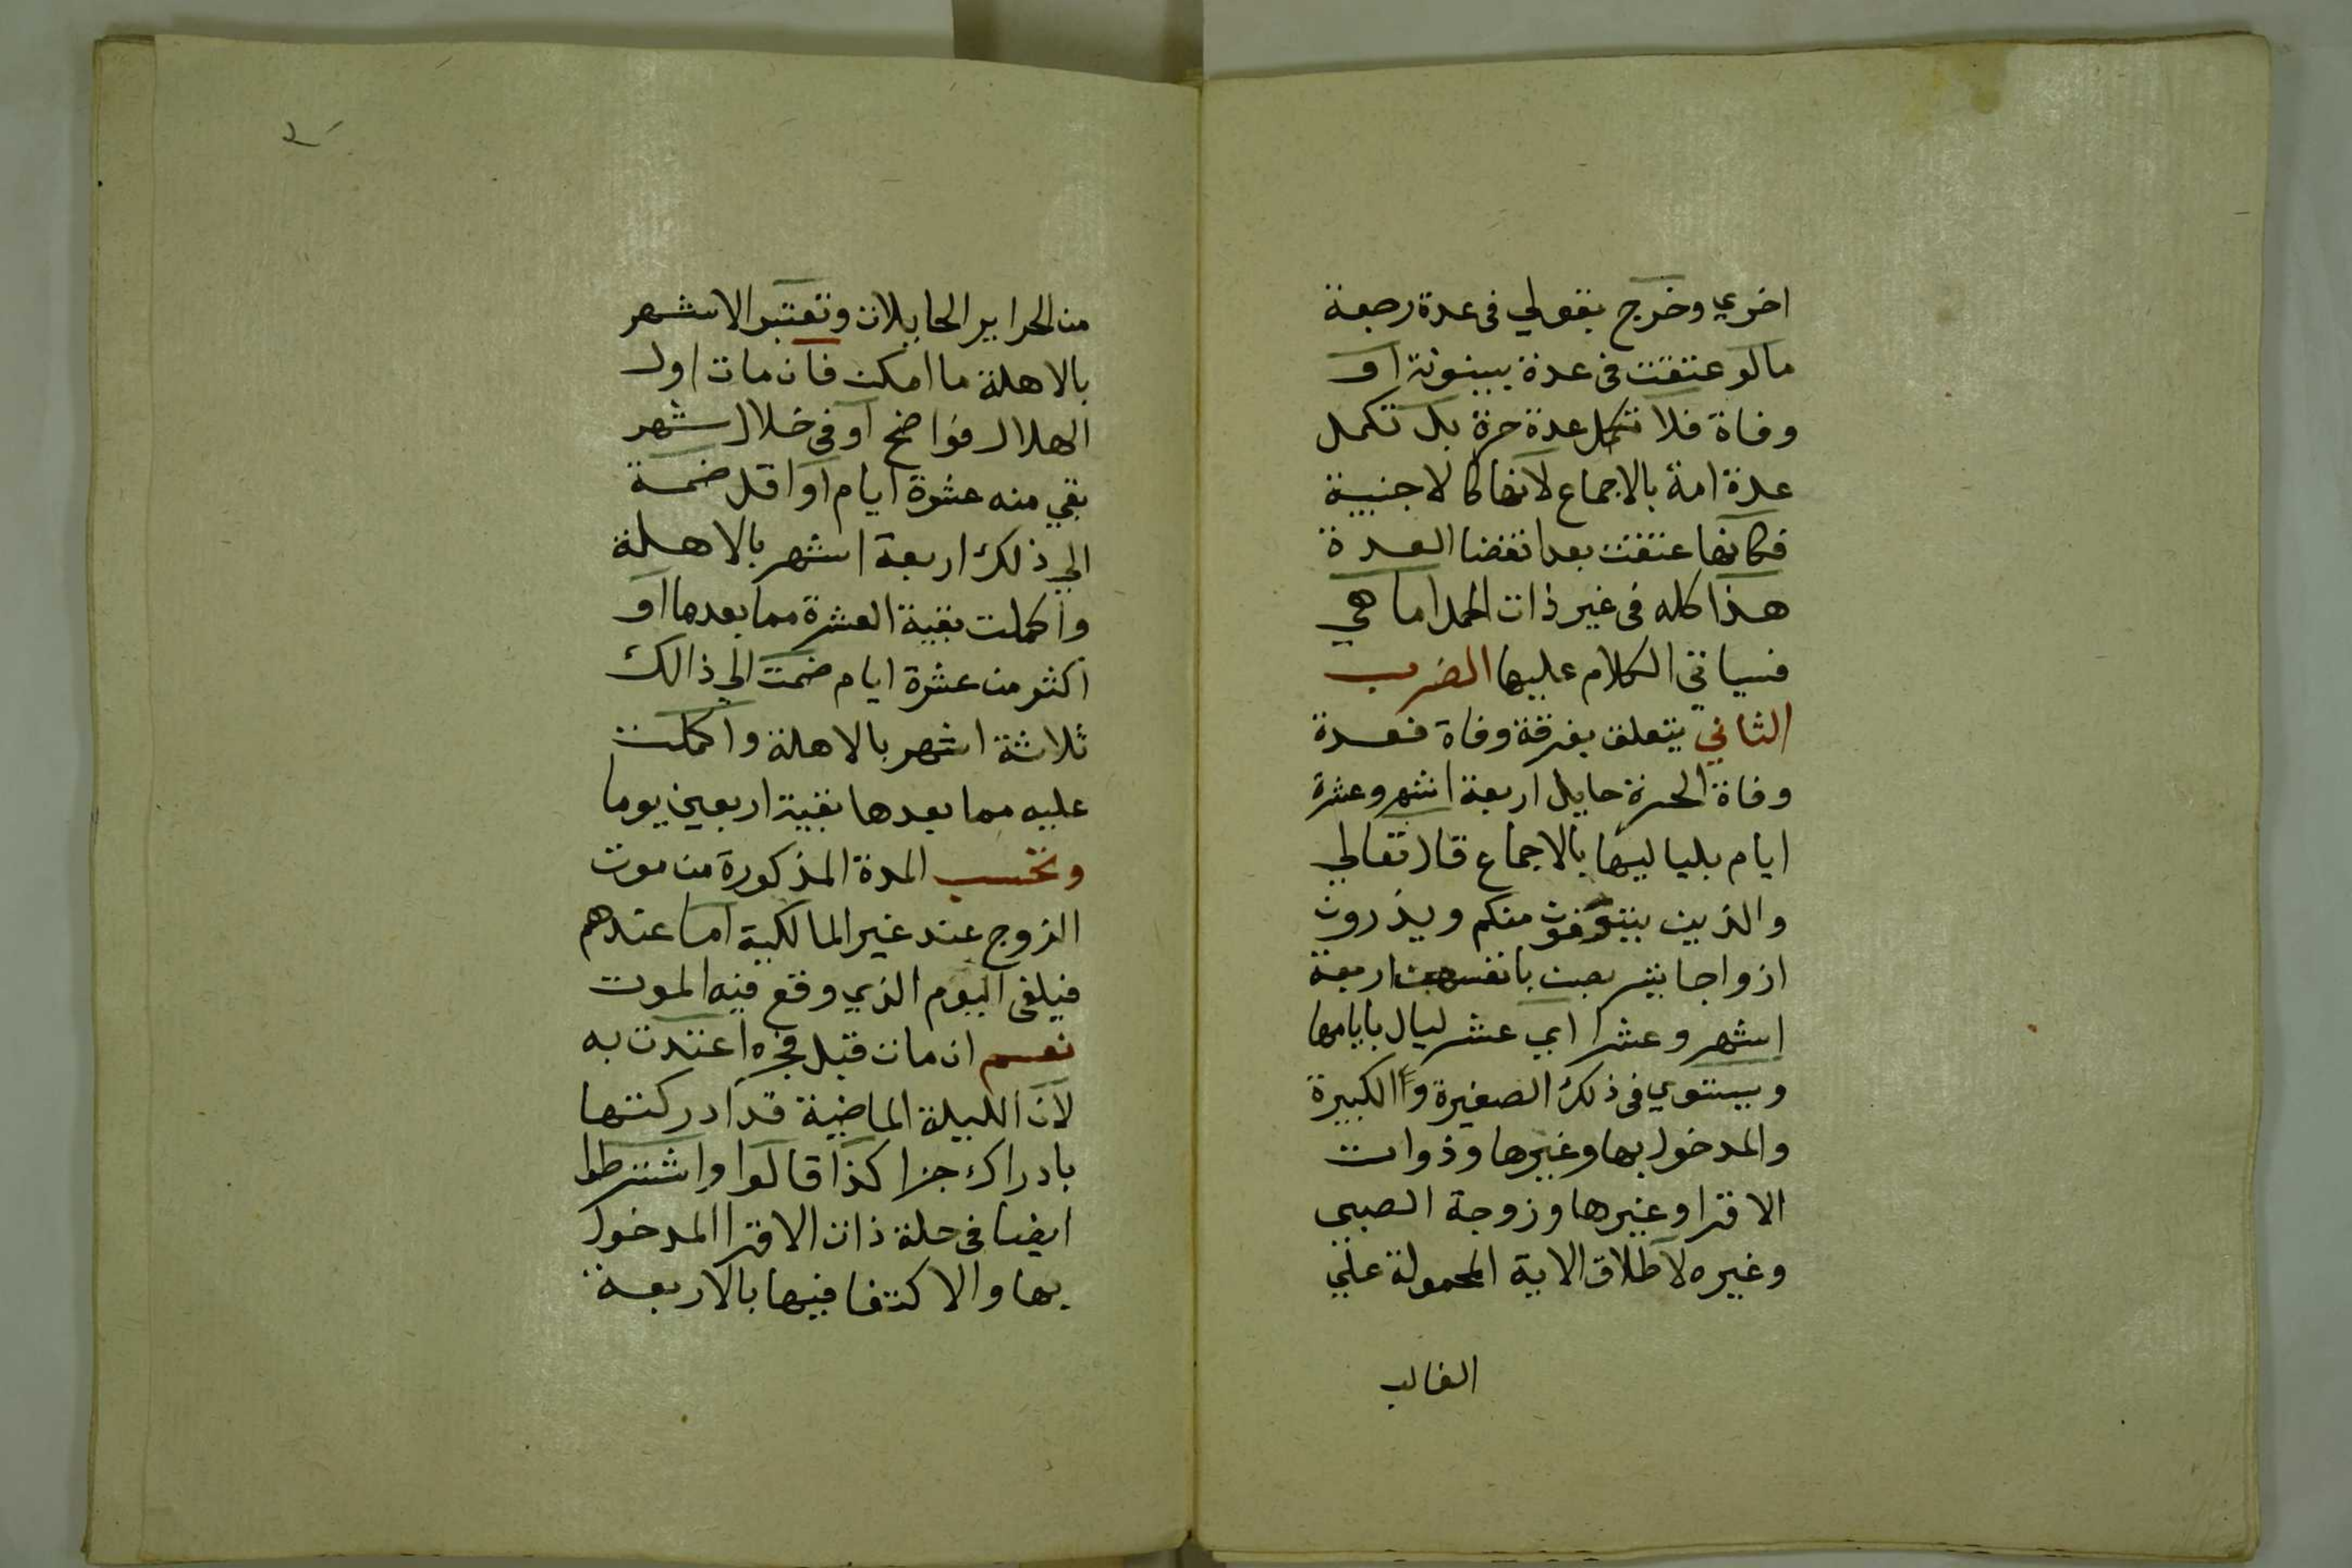 اخري وخرج بقولي في عدة رجعة
مالو عتقت في عدة بينونة او
وفاة فلا تكمل عدة حرة بل تكمل
عدة امة بالاجماع لانها كالاجنبية
فكانها عتقت بعد انقضا العدة
هذا كله في غير ذات الحمل اما هي
فسياتي الكلام عليها الضرب
الثاني يتعلق بفرقة وفاة فعدة
وفاة الحرة حايل اربعة اشهر وعشرة
ايام بلياليها بالاجماع قال تعالي
والذين يتوفون منكم ويذرون
ازواجا يتربصن بانفسهن اربعة
اشهر وعشرا اي عشر ليال بايامها
ويستوي في ذلك الصغيرة والكبيرة
والمدخول بها وغيرها وذوات
الاقرا وغيرها وزوجة الصبي
وغيره لاطلاق الاية المحمولة علي
الغالب
من الحراير الحايلات وتعتبر الاشهر
بالاهلة ما امكن فان مات اول
الهلال فواضح او في خلال شهر
بقي منه عشرة ايام او اقل ضمة
الي ذلك اربعة اشهر بالاهلة
واكملت بقية العشرة مما بعدها او
اكثر من عشرة ايام ضمت الي ذالك
ثلاثة اشهر بالاهلة واكملت
عليه مما بعدها بقية اربعين يوما
وتحسب المدة المذكورة من موت
الزوج عند غير المالكية اما عندهم
فيلغي اليوم الذي وقع فيه الموت
نعم ان مات قبل فجره اعتدت به
لان الليلة الماضية قد ادركتها
بادراك جزا كذا قالوا واشترطوا
ايضا في حلة ذات الاقرا المدخول
بها والاكتفا فيها بالاربعة